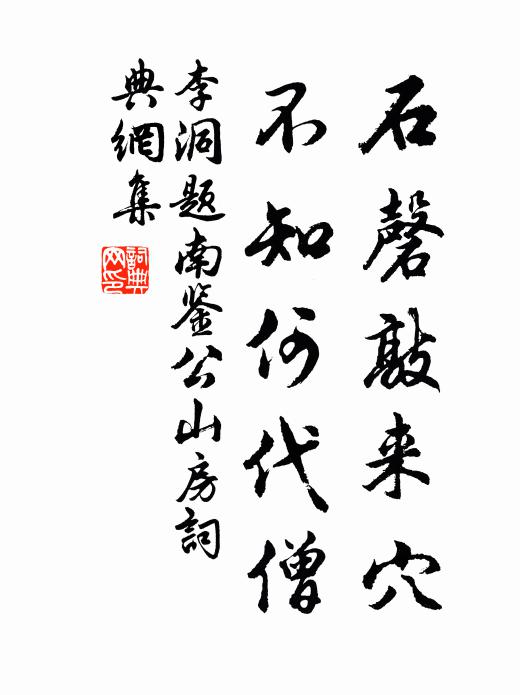 石磬敲来穴
不知何代僧
李洞题南鉴公山房詞
典網集
詞典网印